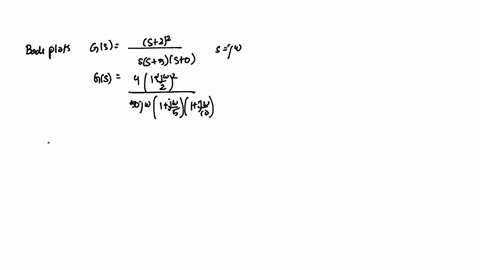 Bode plots G(s) = (s+2)² / s(s+5)(s+10) s=jω
G(s) = 4(1+jω/2)² / 50jω(1+jω/5)(1+jω/10)